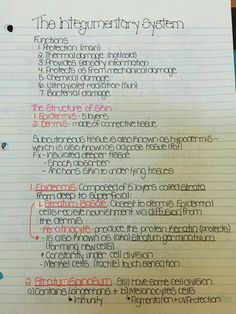 The Integumentary System
Functions
1. Protection (main)
2. Thermal damage (hot/cold)
3. Provides sensory information
4. Protects us from mechanical damage
5. Chemical damage
6. Ultraviolet radiation (sun)
7. Bacterial damage
The Structure of Skin
1. Epidermis - 5 layers
2. Dermis - made of connective tissue
Subcutaneous tissue is also known as hypodermis -
which is also known as adipose tissue (fat)
Fx - insulates deeper tissue
- Shock absorber
- Anchors skin to underlying tissues
1. Epidermis: Composed of 5 layers called strata
from deep to superficial
1. Stratum Basale: Closest to dermis. Epidermal
cells receive nourishment via diffusion from
the dermis
- Keratinocyte - produce the protein Keratin (protects)
- is also known as (aka) stratum germinativum
(forming new cells)
- Constantly under cell division
- Merkel cells (tactile) touch sensation
2. Stratum Spinosum: Still have some cell division
a) Contains Langerhans + b) Melanocytes cells
* Immunity * Pigmentation + UV Protection